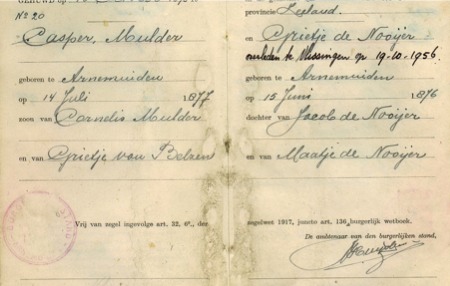 GEHUWD op
provincie Zeeland.
No 20
Casper, Mulder
en Grietje de Nooijer
overleden te Vlissingen op 19-10-1956.
geboren te Arnemuiden
geboren te Arnemuiden
op 14 Juli 1877
op 15 Juni 1876
zoon van Cornelis Mulder
dochter van Jacob de Nooijer
en van Grietje van Belzen
en van Maatje de Nooijer
Vrij van zegel ingevolge art. 32, 6°., der zegelwet 1917, juncto art. 136 burgerlijk wetboek.
De ambtenaar van den burgerlijken stand,